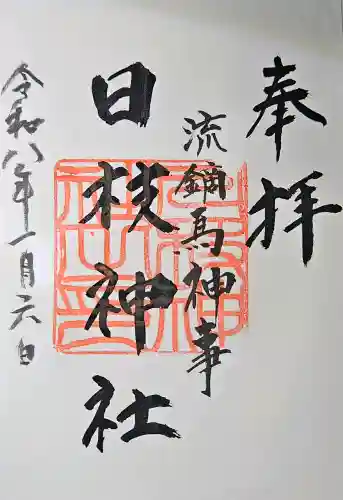 奉拝
流鏑馬神事
日枝神社
令和八年一月六日